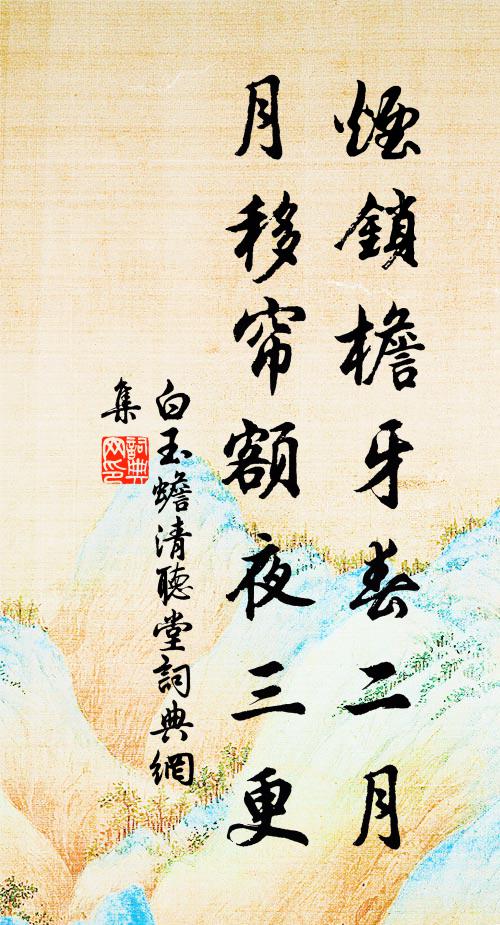 煙鎖檐牙春二月
月移帘額夜三更
白玉蟾清聴堂詞典網
集
詞典网印